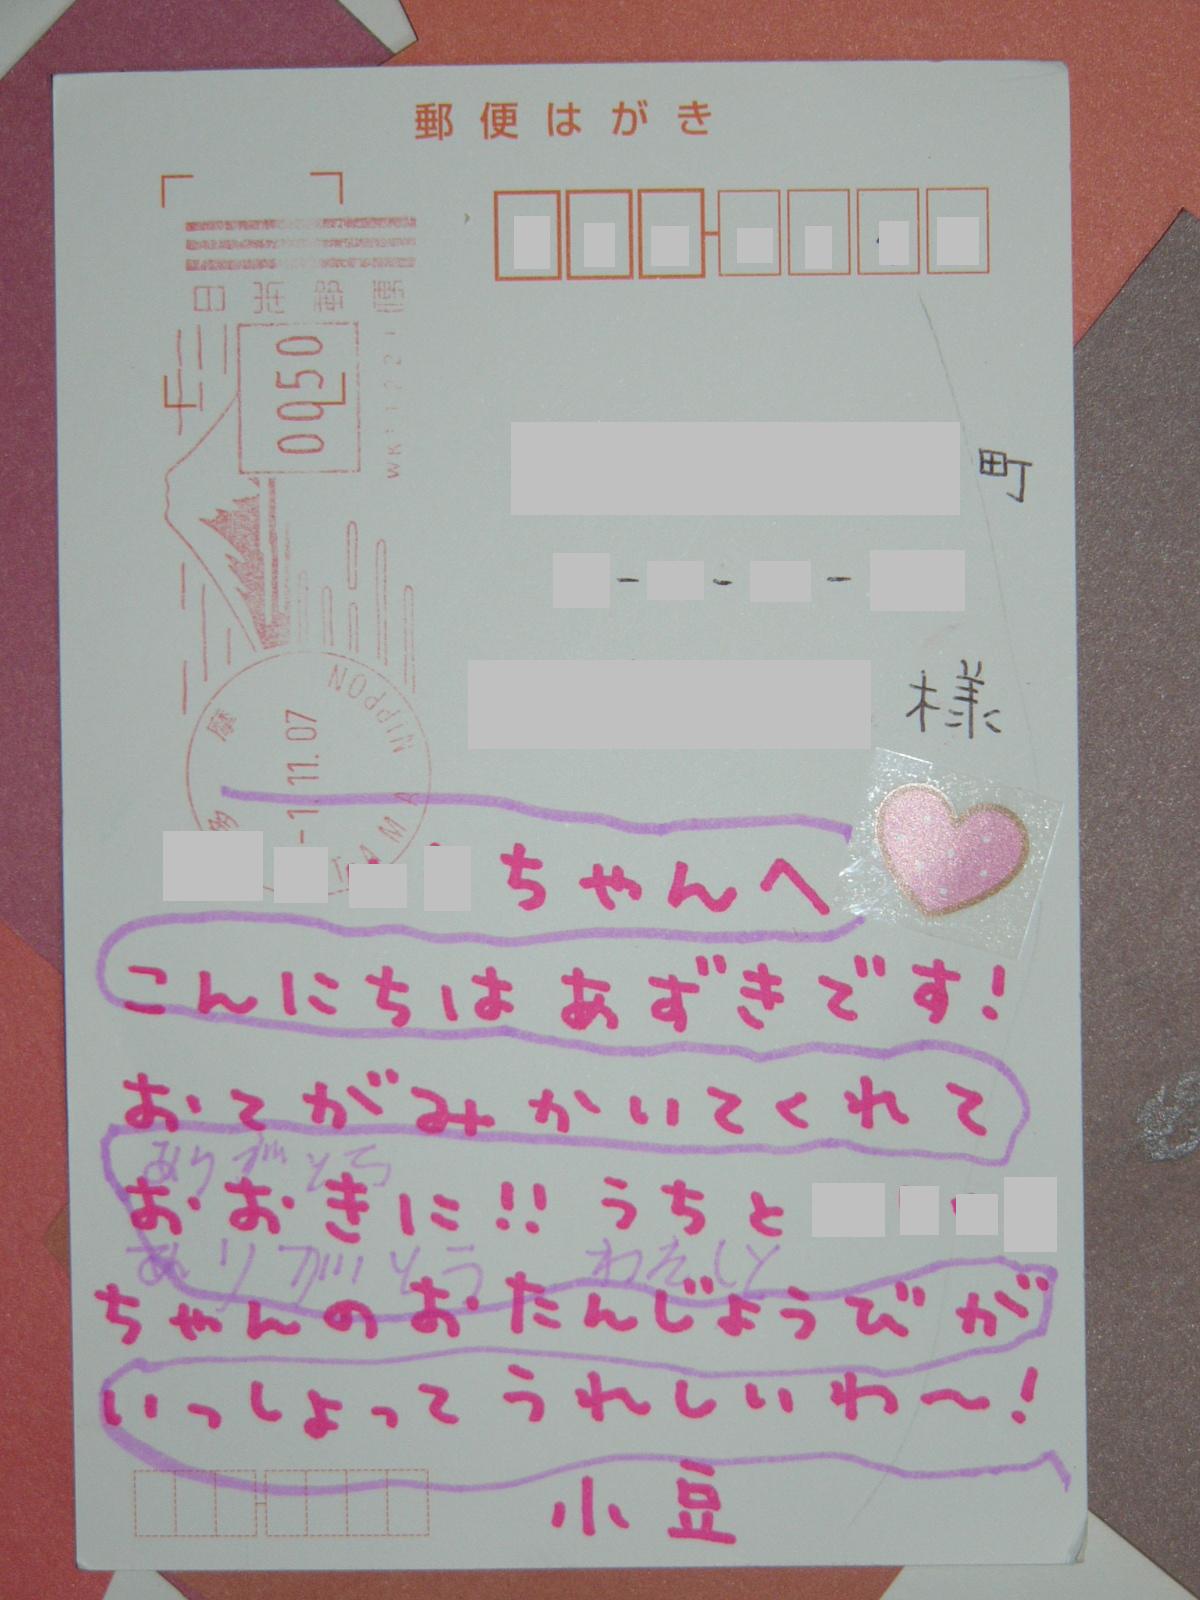 郵便はがき
日本郵便
0050
NIPPON
11.07
TAMA
多摩
町
様
ちゃんへ
こんにちは あずきです!
おてがみ かいてくれて
ありがとう
おおきに!! うちと
ありがとう わたしと
ちゃんのおたんじょうびが
いっしょって うれしいわ〜!
小豆